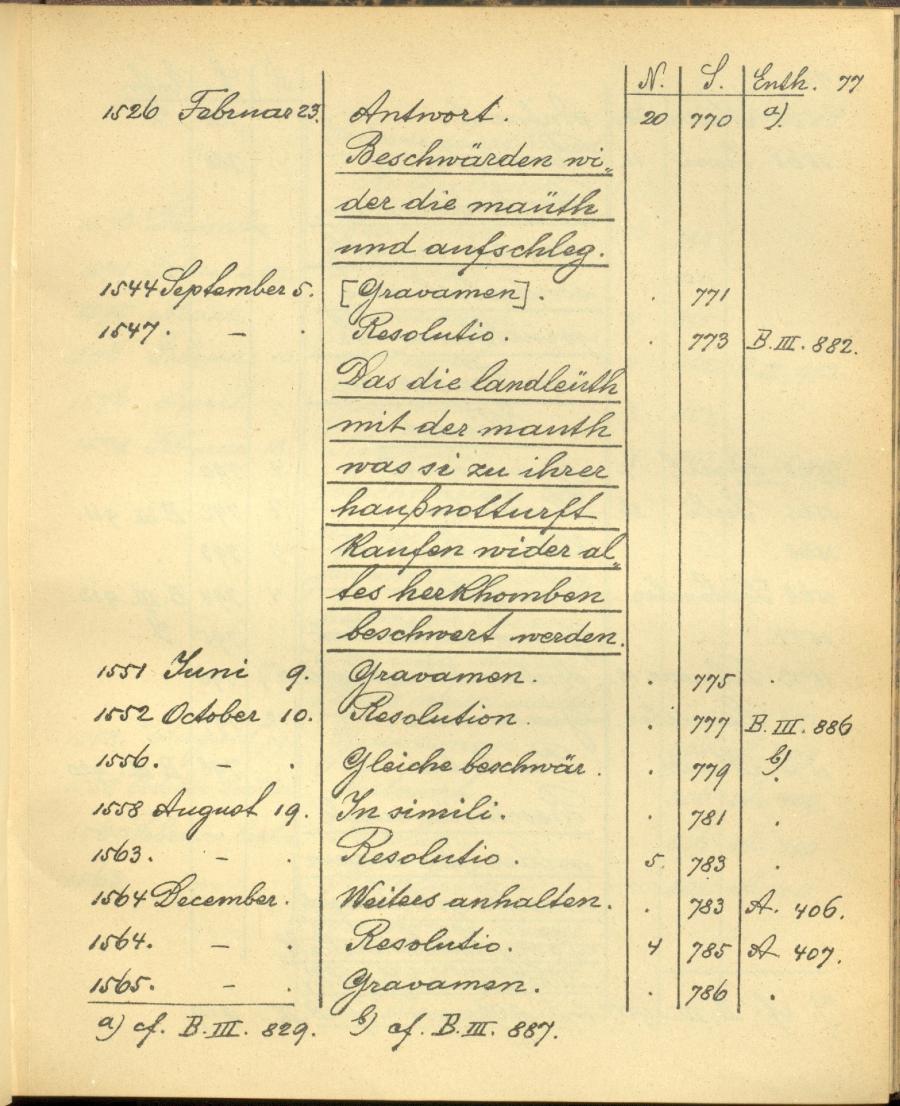 N. S. Enth. 77
1526 Februar 23. Antwort. 20 770 a)
Beschwärden wi„
der die maüth
und aufschleg.
1544 September 5. [Gravamen]. . 771
1547. – . Resolutio. . 773 B.III. 882.
Das die landleüth
mit der mauth
was si zu ihrer
haußnotturft
kaufen wider al„
tes herkhomben
beschwert werden.
1551 Juni 9. Gravamen. . 775 .
1552 October 10. Resolution. . 777 B.III. 886
1556. – . Gleiche beschwär. . 779 b).
1558 August 19. In simili. . 781 .
1563. – . Resolutio. 5. 783 .
1564 December. Weiters anhalten. . 783 A. 406.
1564. – . Resolutio. 4 785 A. 407.
1565. – . Gravamen. . 786 .
a) cf. B.III. 829. b) cf. B.III. 887.